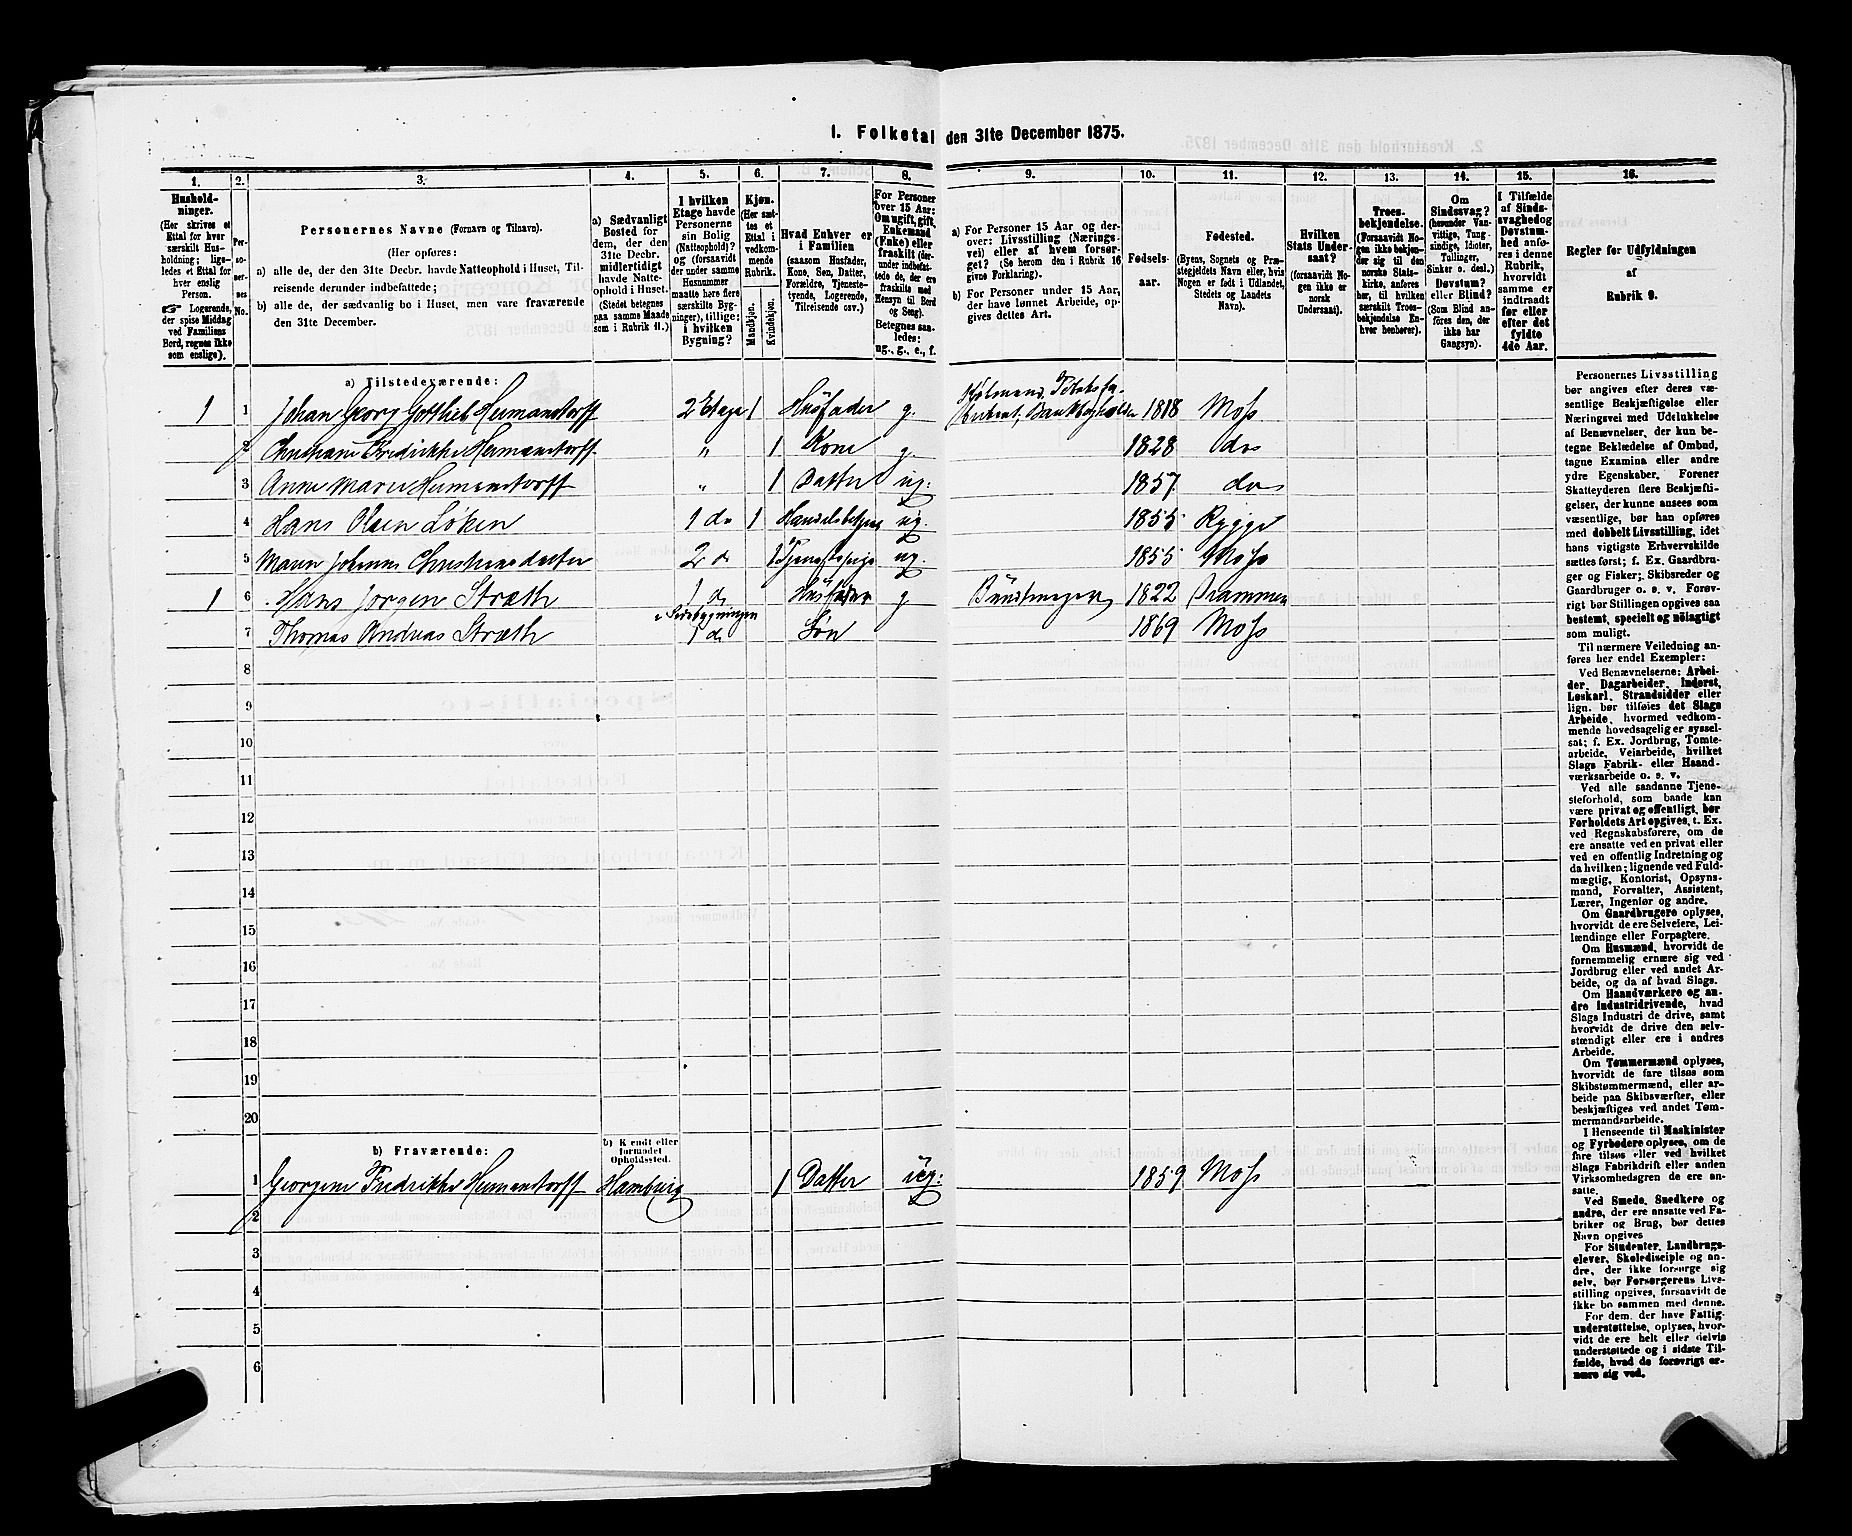 1. Folketal den 31te December 1875.
1. 2. 3. 4. 5. 6. 7. 8. 9. 10. 11. 12. 13. 14. 15. 16.
Hushold-
ninger.
(Her skrives et
Ettal for hver
særskilt Hus-
holdning; lige-
ledes et Ettal for
hver enslig
Person.
☞ Logerende,
der spise Middag
ved Familiens
Bord, regnes ikke
som enslige).
Per-
so-
ner-
nes
No.
Personernes Navne (Fornavn og Tilnavn).
(Her opføres:
a) alle de, der den 31te Decbr. havde Natteophold i Huset, Til-
reisende derunder indbefattede;
b) alle de, der sædvanlig bo i Huset, men vare fraværende
den 31te December.
a) Sædvanligt
Bosted for
dem, der den
31te Decbr.
midlertidigt
havde Natte-
ophold i Huset.
(Stedet betegnes
paa samme Maade
som i Rubrik 11.)
I hvilken
Etage havde
Personerne
sin Bolig
(Natteophold)?
og (forsaavidt
der under samme
Husnummer
maatte høre flere
særskilte Byg-
ninger), tillige:
i hvilken
Bygning?
Kjøn.
(Her sæt-
tes et
Ettal i
vedkom-
mende
Rubrik.
Mandkjøn.
Kvindekjøn.
Hvad Enhver er
i Familien
(saasom Husfader,
Kone, Søn, Datter,
Forældre, Tjeneste-
tyende, Logerende,
Tilreisende osv.)
For Personer
over 15 Aar:
Om ugift, gift,
Enkemand
(Enke) eller
fraskilt (der-
under indbefat-
tede de, der ere
fraskilte med
Hensyn til Bord
og Seng).
Betegnes saa-
ledes:
ug., g., e., f.
a) For Personer 15 Aar og der-
over: Livsstilling (Nærings-
vei) eller af hvem forsør-
get? (Se herom den i Rubrik 16
givne Forklaring).
b) For Personer under 15 Aar,
der have lønnet Arbeide, op-
gives dettes Art.
Fødsels-
aar.
Fødested.
(Byens, Sognets og Præ-
stegjeldets Navn eller, hvis
Nogen er født i Udlandet,
Stedets og Landets
Navn).
Hvilken
Stats Under-
saat?
(forsaavidt No-
gen ikke er
norsk
Undersaat).
Troes-
bekjendelse.
(Forsaavidt No-
gen ikke bekjen-
der sig til den
norske Stats-
kirke, anføres
her, til hvilken
særskilt Troes-
bekjendelse En-
hver henhører).
Om
Sindssvag?
(herunder Van-
vittige, Tung-
sindige, Idioter,
Tullinger,
Sinker o. desl.)
Døvstum?
eller Blind?
(Som Blind an-
føres den, der
ikke har
Gangsyn).
I Tilfælde
af Sinds-
svaghed og
Døvstum-
hed anfø-
res i denne
Rubrik,
hvorvidt
samme er
indtraadt
før eller
efter det
fyldte
4de Aar.
Regler for Udfyldningen
af
Rubrik 9.
a) Tilstedeværende:
1 1 Johan Georg Gottlieb Hermanstorff 2 Etage 1 Husfader g. 1818 Moss
2 Christiane Fredrikke Hermanstorff " 1 Kone g. 1828 do
3 Anne Marie Hermanstorff " 1 Datter ug. 1857 do
4 Hans Olsen Løken 1 do 1 Handelsbetjent ug. 1855 Rygge
5 Maren Johanne Christiansdatter 2 do 1 Tjenestepige ug. 1855 Moss
1 6 Hans Jørgen Stræth 1 do Husfader g Bundtmager 1822 Drammen
i Sidebygningen
7 Thomas Andreas Stræth 1 do Søn 1869 Moss
8
9
10
11
12
13
14
15
16
17
18
19
20
b) Fraværende:
b) Kjendt eller
formodet
Opholdssted.
1 Georgine Fredrikke Hermanstorff Hamburg 1 Datter ug. 1859 Moss
2
3
4
5
6
Personernes Livsstilling
bør angives efter deres væ-
sentlige Beskjæftigelse eller
Næringsvei med Udelukkelse
af Benævnelser, der kun be-
tegne Beklædelse af Ombud,
tagne Examina eller andre
ydre Egenskaber. Forener
Skatteyderen flere Beskjæfti-
gelser, der kunne ansees som
væsentlige, bør han opføres
med dobbelt Livsstilling, idet
hans vigtigste Erhvervskilde
sættes først; f. Ex. Gaardbru-
ger og Fisker; Skibsreder og
Gaardbruger o. s. v. Forøv-
rigt bør Stillingen opgives saa
bestemt, specielt og nøiagtigt
som muligt.
Til nærmere Veiledning an-
føres her endel Exempler:
Ved Benævnelserne: Arbei-
der, Dagarbeider, Inderst,
Løskarl, Strandsidder eller
lign. bør tilføies det Slags
Arbeide, hvormed vedkom-
mende hovedsagelig er syssel-
sat; f. Ex. Jordbrug, Tomte-
arbeide, Veiarbeide, hvilket
Slags Fabrik- eller Haand-
værksarbeide o. s. v.
Ved alle saadanne Tjene-
steforhold, som baade kan
være privat og offentligt, bør
Forholdets Art opgives, t. Ex.
ved Regnskabsførere, om de
ere ansatte ved en privat eller
ved en offentlig Indretning og
da hvilken; lignende ved Fuld-
mægtig, Kontorist, Opsyns-
mand, Forvalter, Assistent,
Lærer, Ingeniør og andre.
Om Gaardbrugere oplyses,
hvorvidt de ere Selveiere, Lei-
lændinge eller Forpagtere.
Om Husmænd, hvorvidt de
fornemmelig ernære sig ved
Jordbrug eller ved andet Ar-
beide, og da af hvad Slags.
Om Haandværkere og an-
dre Industridrivende, hvad
Slags Industri de drive, samt
hvorvidt de drive den selv-
stændigt eller ere i andres
Arbeide.
Om Tømmermænd oplyses,
hvorvidt de fare tilsøs som
Skibstømmermænd, eller ar-
beide paa Skibsværfter, eller
beskjæftiges ved andet Tøm-
mermandsarbeide.
I Henseende til Maskinister
og Fyrbødere oplyses, om de
fare tilsøs eller ved hvilket
Slags Fabrikdrift eller anden
Virksomhedsgren de ere an-
satte.
Ved Smede, Snedkere og
andre, der ere ansatte ved Fa-
briker og Brug, bør dettes
Navn opgives
For Studenter, Landbrugs-
elever, Skoledisciple og an-
dre, der ikke forsørge sig
selv, bør Forsørgerens Livs-
stilling opgives, forsaavidt de
ikke bo sammen med denne.
For dem, der have Fattig-
understøttelse, oplyses, hvor-
vidt de ere helt eller delvis
understøttede og i sidste Til-
fælde, hvad de forøvrigt er-
nære sig ved.